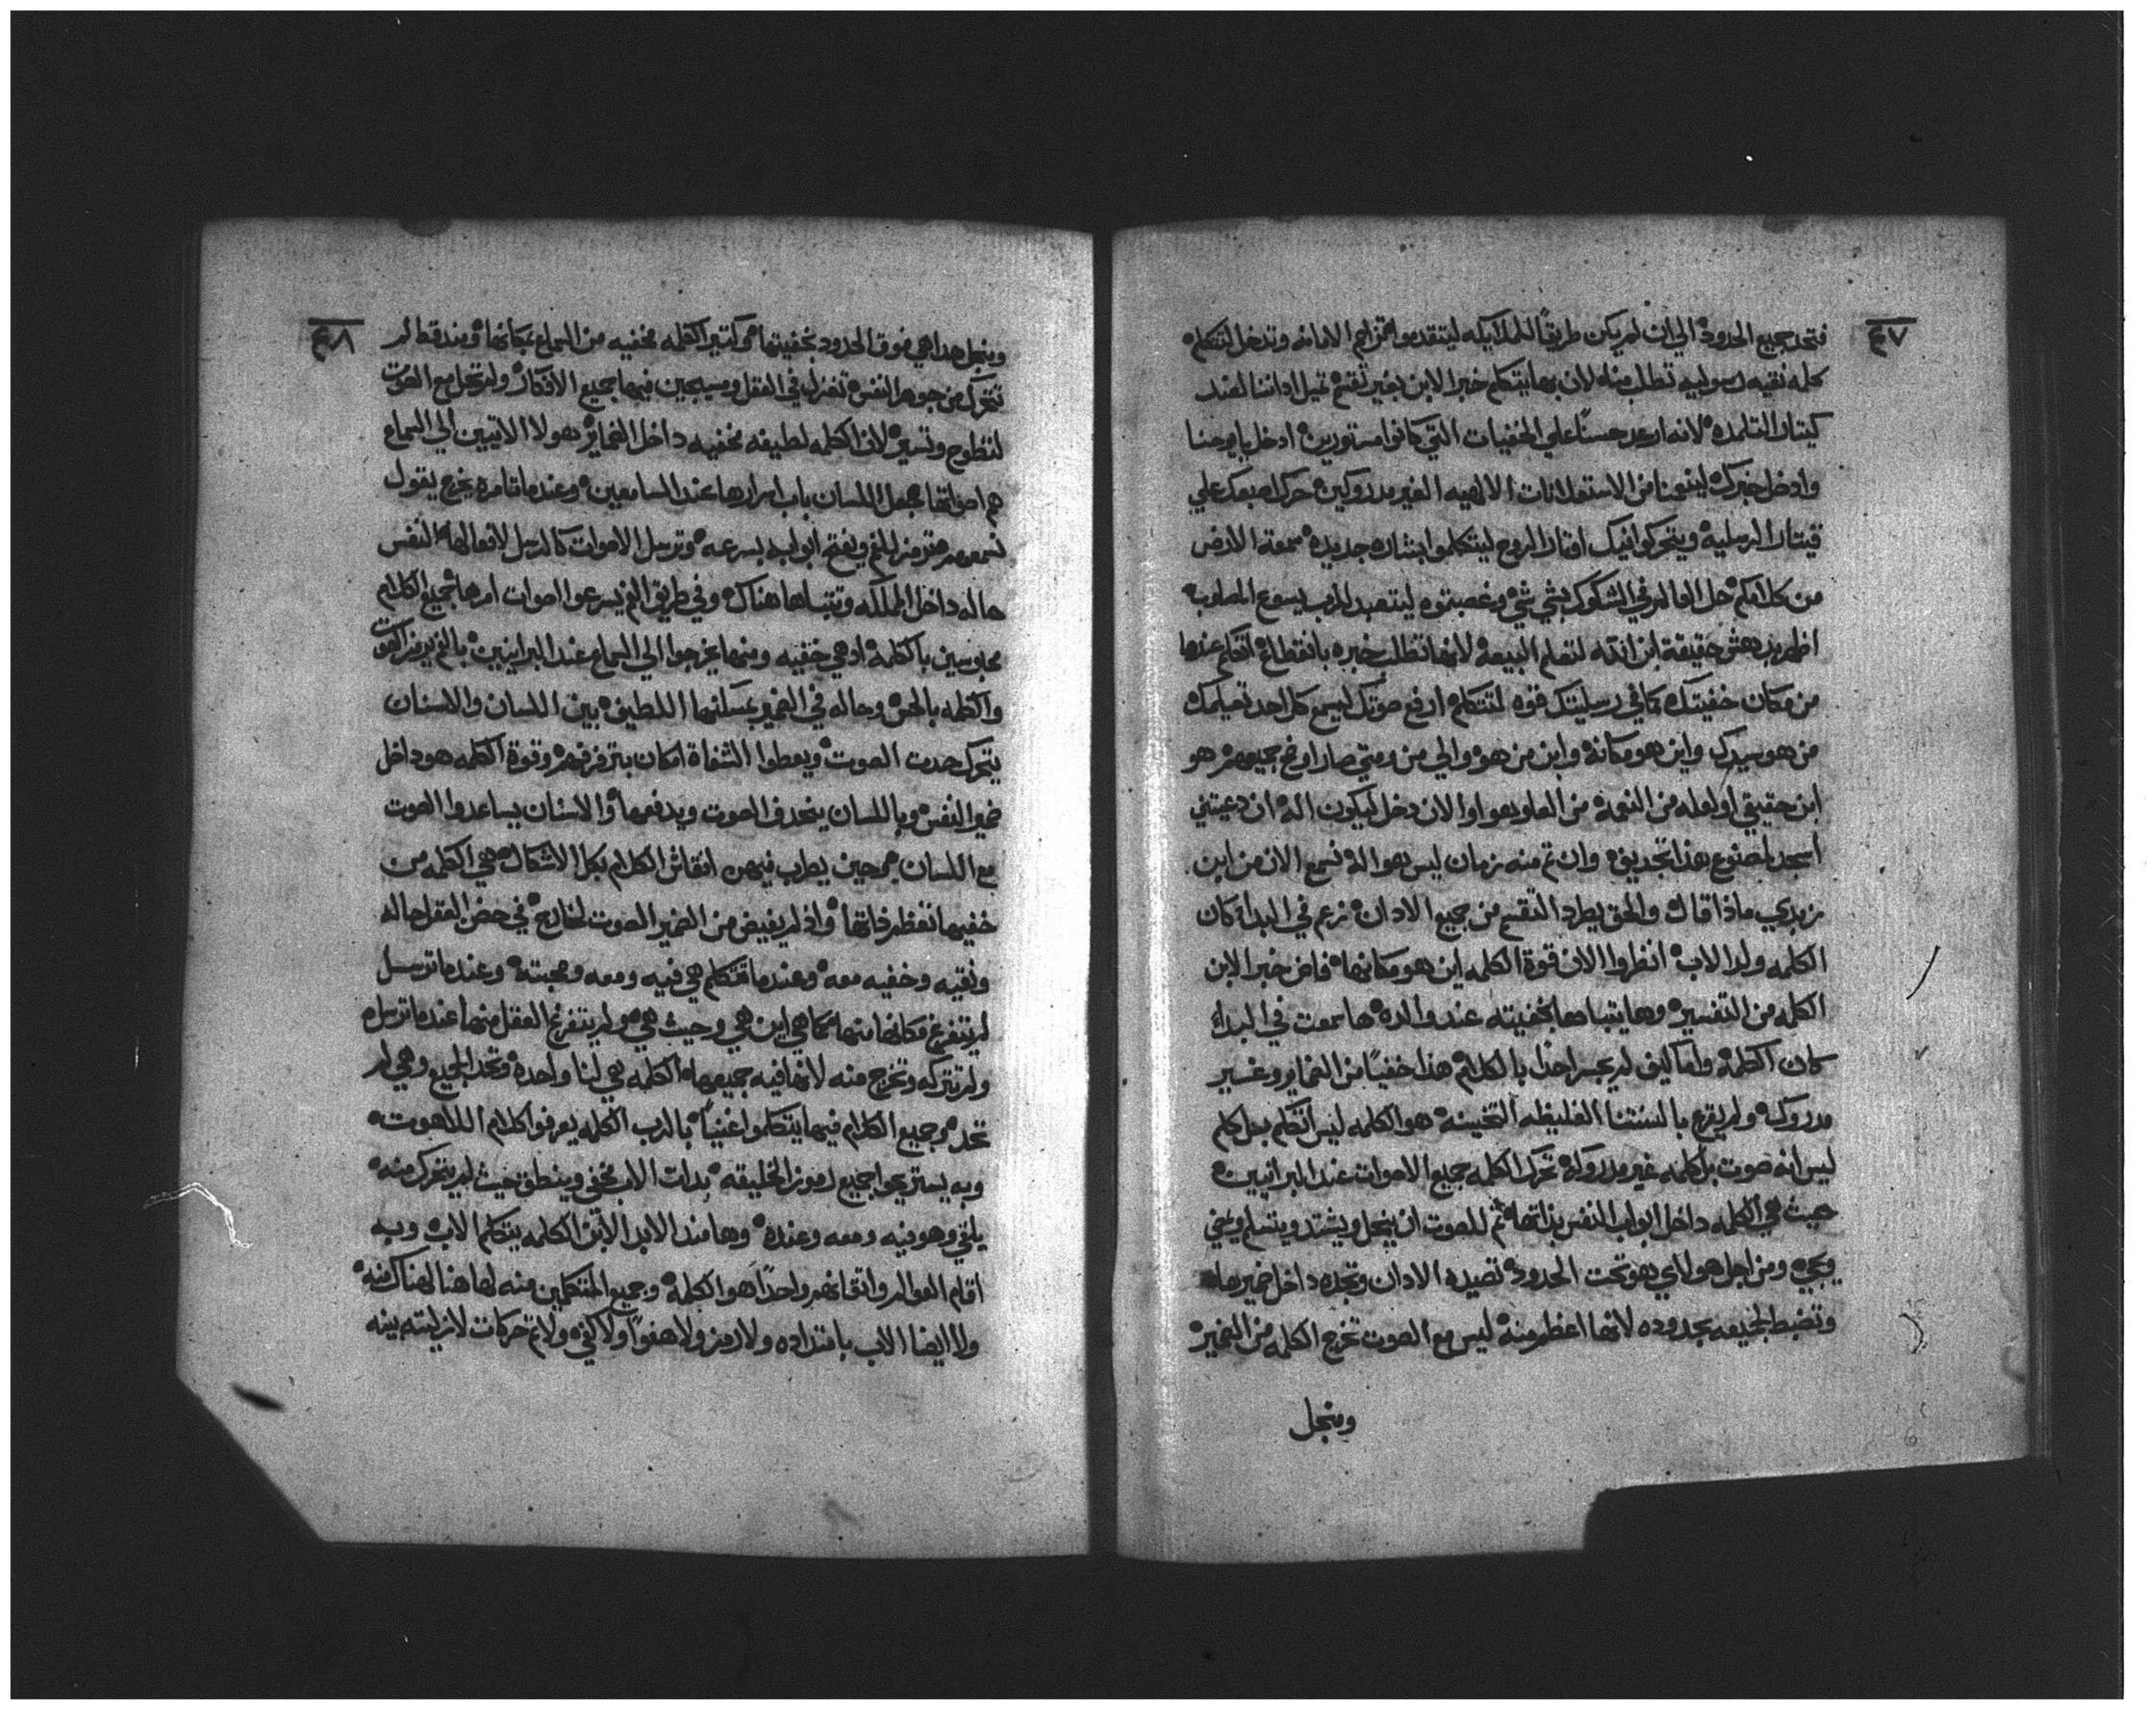 ٤٧
فتحد جميع الحدود الي ان لم يكن طريقاً للملايكه ليتقدموا اقتراحم الامانه وتدخل لتتكلم
كله نقيه رسوليه تطلب منه لان بها يتكلم خبر الابن بغير تقتم تميل اداننا لصند
كيتار التلمده لانه ارعد حسناً علي الخفيات التي كانوا مستورين ادخل يا يوحنا
وادخل خبرك لينعنا من الاستعلانات الالهيه الغير مدروكين حرك اصبعك علي
قيتار الرسليه ويتحركوا فيك اوتار الروح ليتكلموا بشاره جديده سمعة الارض
من كلامكم حل العالم في الشكوك بشي شي وغصبتوه ليتعبد للرب يسوع المصلوب
اظهر بدهش حقيقة ابن الله لتعلم البيعه لانها تطلب خبره بانقطاع اتكلم عندها
من مكان خفيتك كما في رسليتك قوه لتتكلم ارفع صوتك ليسمع كل احد تعيلمك
من هو سيدك واين هو مكانه وابن من هو والي من ومتي صار اوضح جميعهم هو
ابن حقيقي او لعله من النعمه من العلو يهوا والان دخل ليكون اله ان دعيتني
اسجد لمصنوع هذا تجديف وان تم منه زمان ليس هو اله نسمع الان من ابن
زبدي ماذا قال والحق يطرد التقسم من جميع الادان زعم في البداء كان
الكلمه ولد الاب انظروا الان قوة الكلمه اين هو مكانها فاض خبر الابن
الكلمه من التفسير وها يتباها بخفيته عند والده ها سمعت في البداء
كان الكلمه واما كيف لم يجسر احدا بالكلام هذا خفياً من الضماير وغير
مدروك ولم يقترع بالسنتنا الغليظه التخينه هو الكلمه ليس اتكلم بحل كلم
ليس انه صوت بل كلمه غير مدروكه تحرك الكلمه جميع الاصوات عند البرانيين
حيث هي الكلمه داخل ابواب النفس بذاتها ثم للصوت ان ينحل ويشتد ويتسلم ويمضي
ويجي ومن اجل هولاي هو تحت الحدود تصيده الادان وتجده داخل ضميرها
وتضبط لجميعه بحدوده لانها اعظم منه ليس مع الصوت تخرج الكلمه من الضمير
ومنجل
٤٨
ومنجل هدا هي فوق الحدود بخفيتها هوكثير الكلمه مخفيه من السماع بمكانها ومند قط لم
تتحرك من جوهر النفس تغزل في العقل وميسجين فيها جميع الافكار ولم تحل مع الصوت
لتطوح وتسير لان الكلمه لطيفه مخفيه داخل الضماير هولا الاتيين الي السماع
هم اصواتها جعل اللسان باب اسرارها عند السامعين وعند ما تامره يخرج يقول
لسمعهم مترمز للفم ويفتح ابوابه بسرعه وترسل الاصوات كالرسل لافعالها النفس
حاله داخل المملكه وتتباها هناك وفي طريق الفم يسرعوا اصوات امرها جميع الكلام
محبوسين بالكلمه اد هي خفيه ومنها يخرجوا الي السماع عند البرانيين بالفم يرمز الصوت
والكلمه بالحس وحاله في الضمير بمسكنها اللطيف بين اللسان والاسنان
يتحرك حدت الصوت ويعطوا الشفاة امكان بترفرفهم وقوة الكلمه هو داخل
ضمير النفس وباللسان ينحدف الصوت ويدفعها والاسنان يساعدوا الصوت
مع اللسان جمحين يطرب فيهن انقاش الكلام بكل الاشكال هي الكلمه من
خفيها تنظر ذاتها واذ لم يفيض من الضمير الصوت لخارج في حضن العقل حاله
ونقيه وخفيه معه وعندما تتكلم هي فيه ومعه وصحبته وعندما ترسل
لم يتفرغ مكانها منها كما هي اين هي وحيث هي هو لم يتفرغ العقل منها عندما ترسله
ولم تتركه وتخرج منه لانها فيه جميعها الكلمه هي لنا واحده وتحد الجميع وهي لم
تحد وجميع الكلام فيها يتكلموا غنياً بالرب الكلمه يعرفوا كلام اللاهوت
وبه يستريحوا جميع رموز الخليقه بدات الاب مخفي وينطق حيث لم يتحرك منه
يلقي وهو فيه ومعه وعنده وها مند الابد الابن الكلمه يتكلم الاب وبه
اقام العوالم واتقانهم واحداً هو الكلمه وجميع المتكلمين منه لها هنا لهناك منه
ولا ايضا الاب بامتداده ولا رمز ولا هفواً ولا كفي ولا تم حركات لازليته بينه